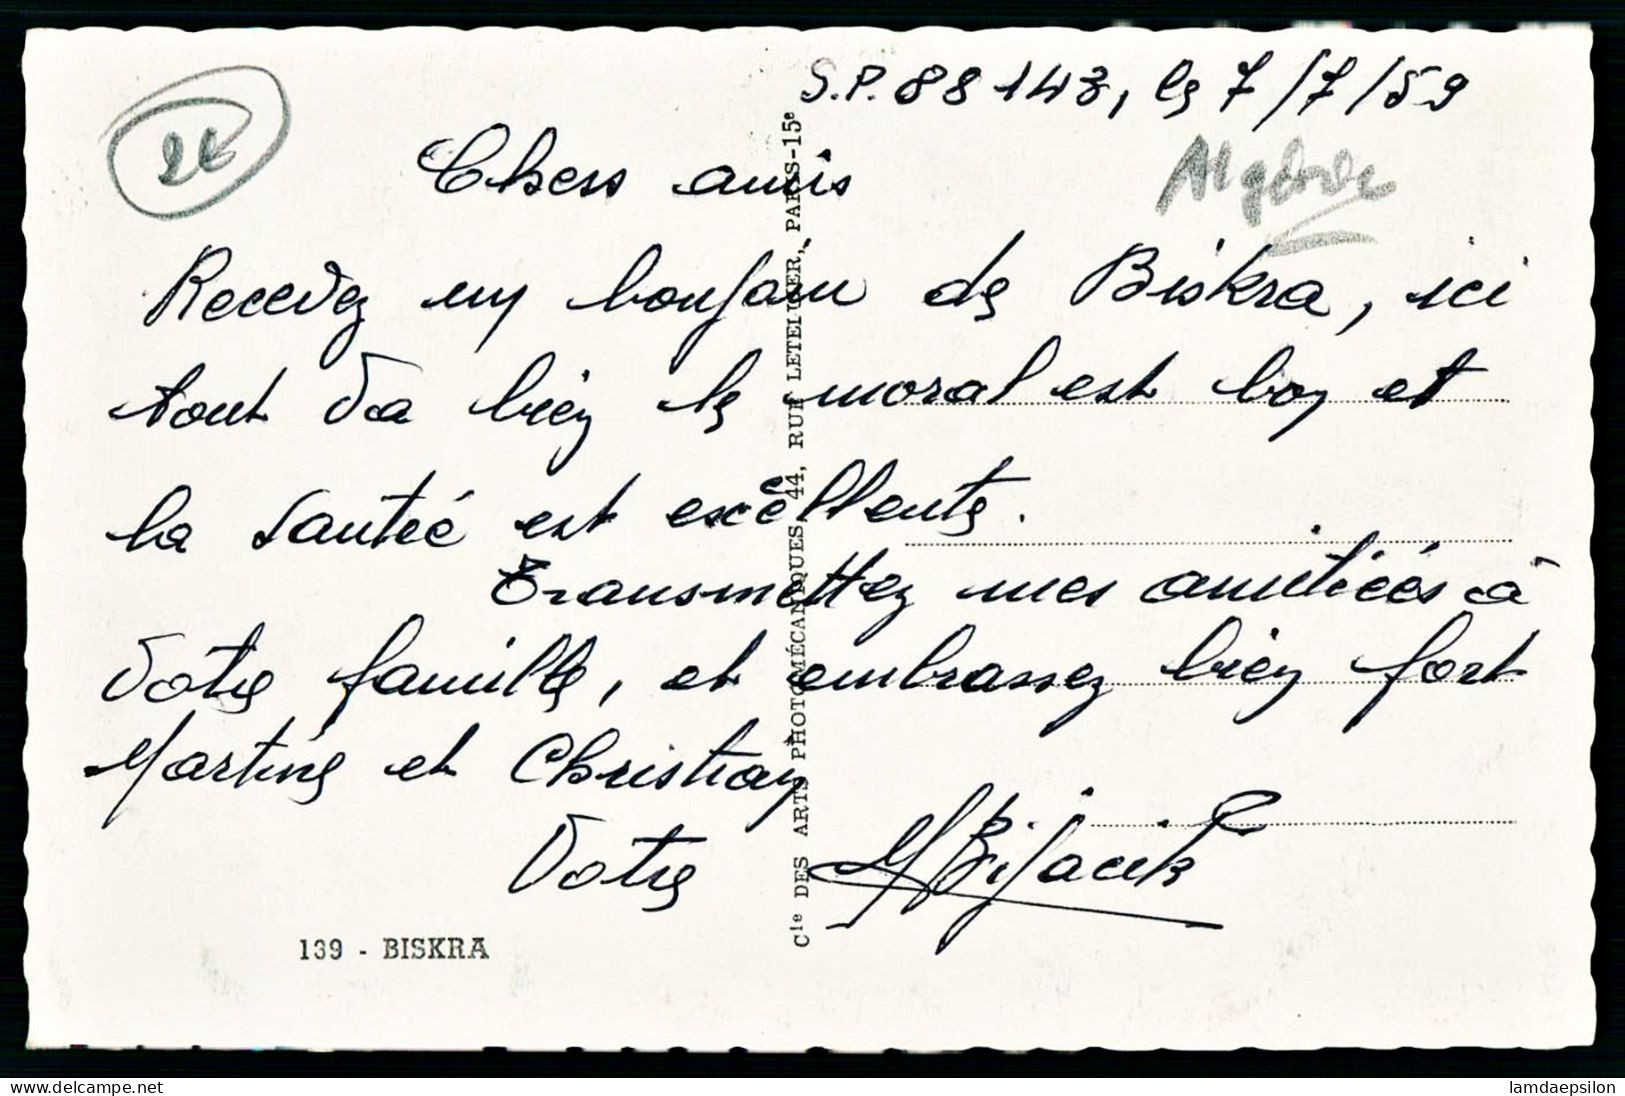 S.P. 88143, le 7/7/59
2€
Algérie
Chers amis
Recevez un bonjour de Biskra, ici
tout va bien le moral est bon et
la santée est excéllente.
Transmettez mes amitiéés à
votre famille, et embrassez bien fort
Martine et Christian
Votre
139 - BISKRA
Cie DES ARTS PHOTOMÉCANIQUES, 44, RUE LETELLIER, PARIS-15e
www.delcampe.net
lamdaepsilon